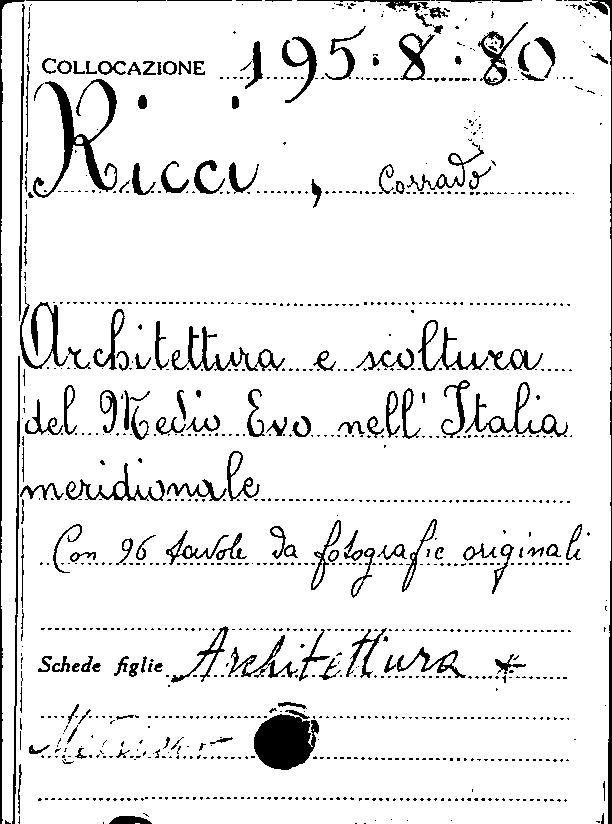 COLLOCAZIONE 195.8.80
Ricci, Corrado
Architettura e scoltura
del Medio Evo nell'Italia
meridionale
Con 96 tavole da fotografie originali
Schede figlie Architettura *